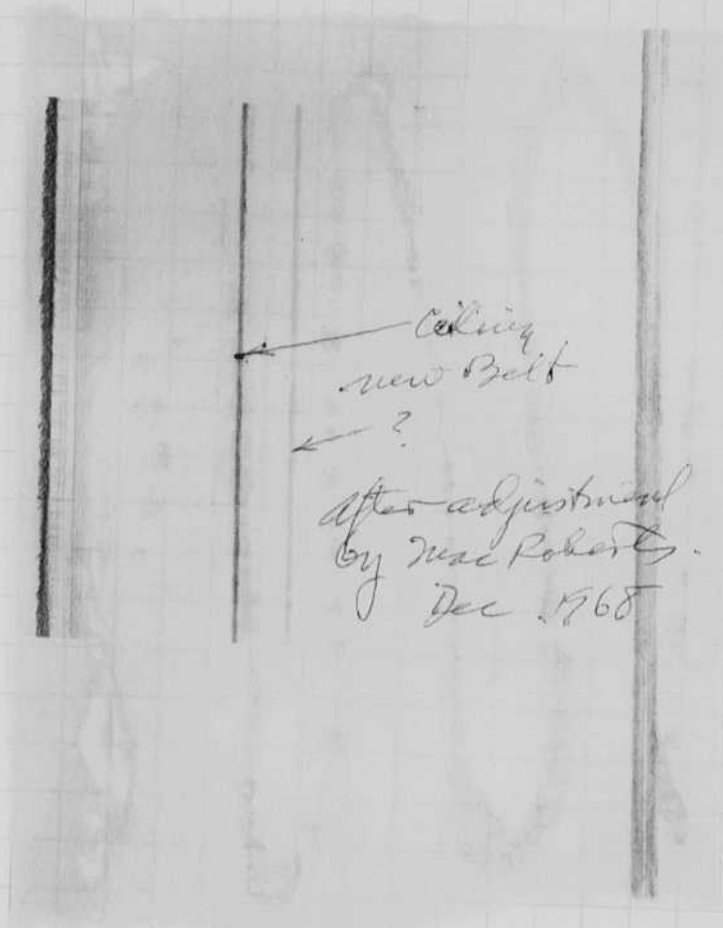 Ceiling
new Belt
?
After adjustment
by Mac Roberts.
Dec. 1968